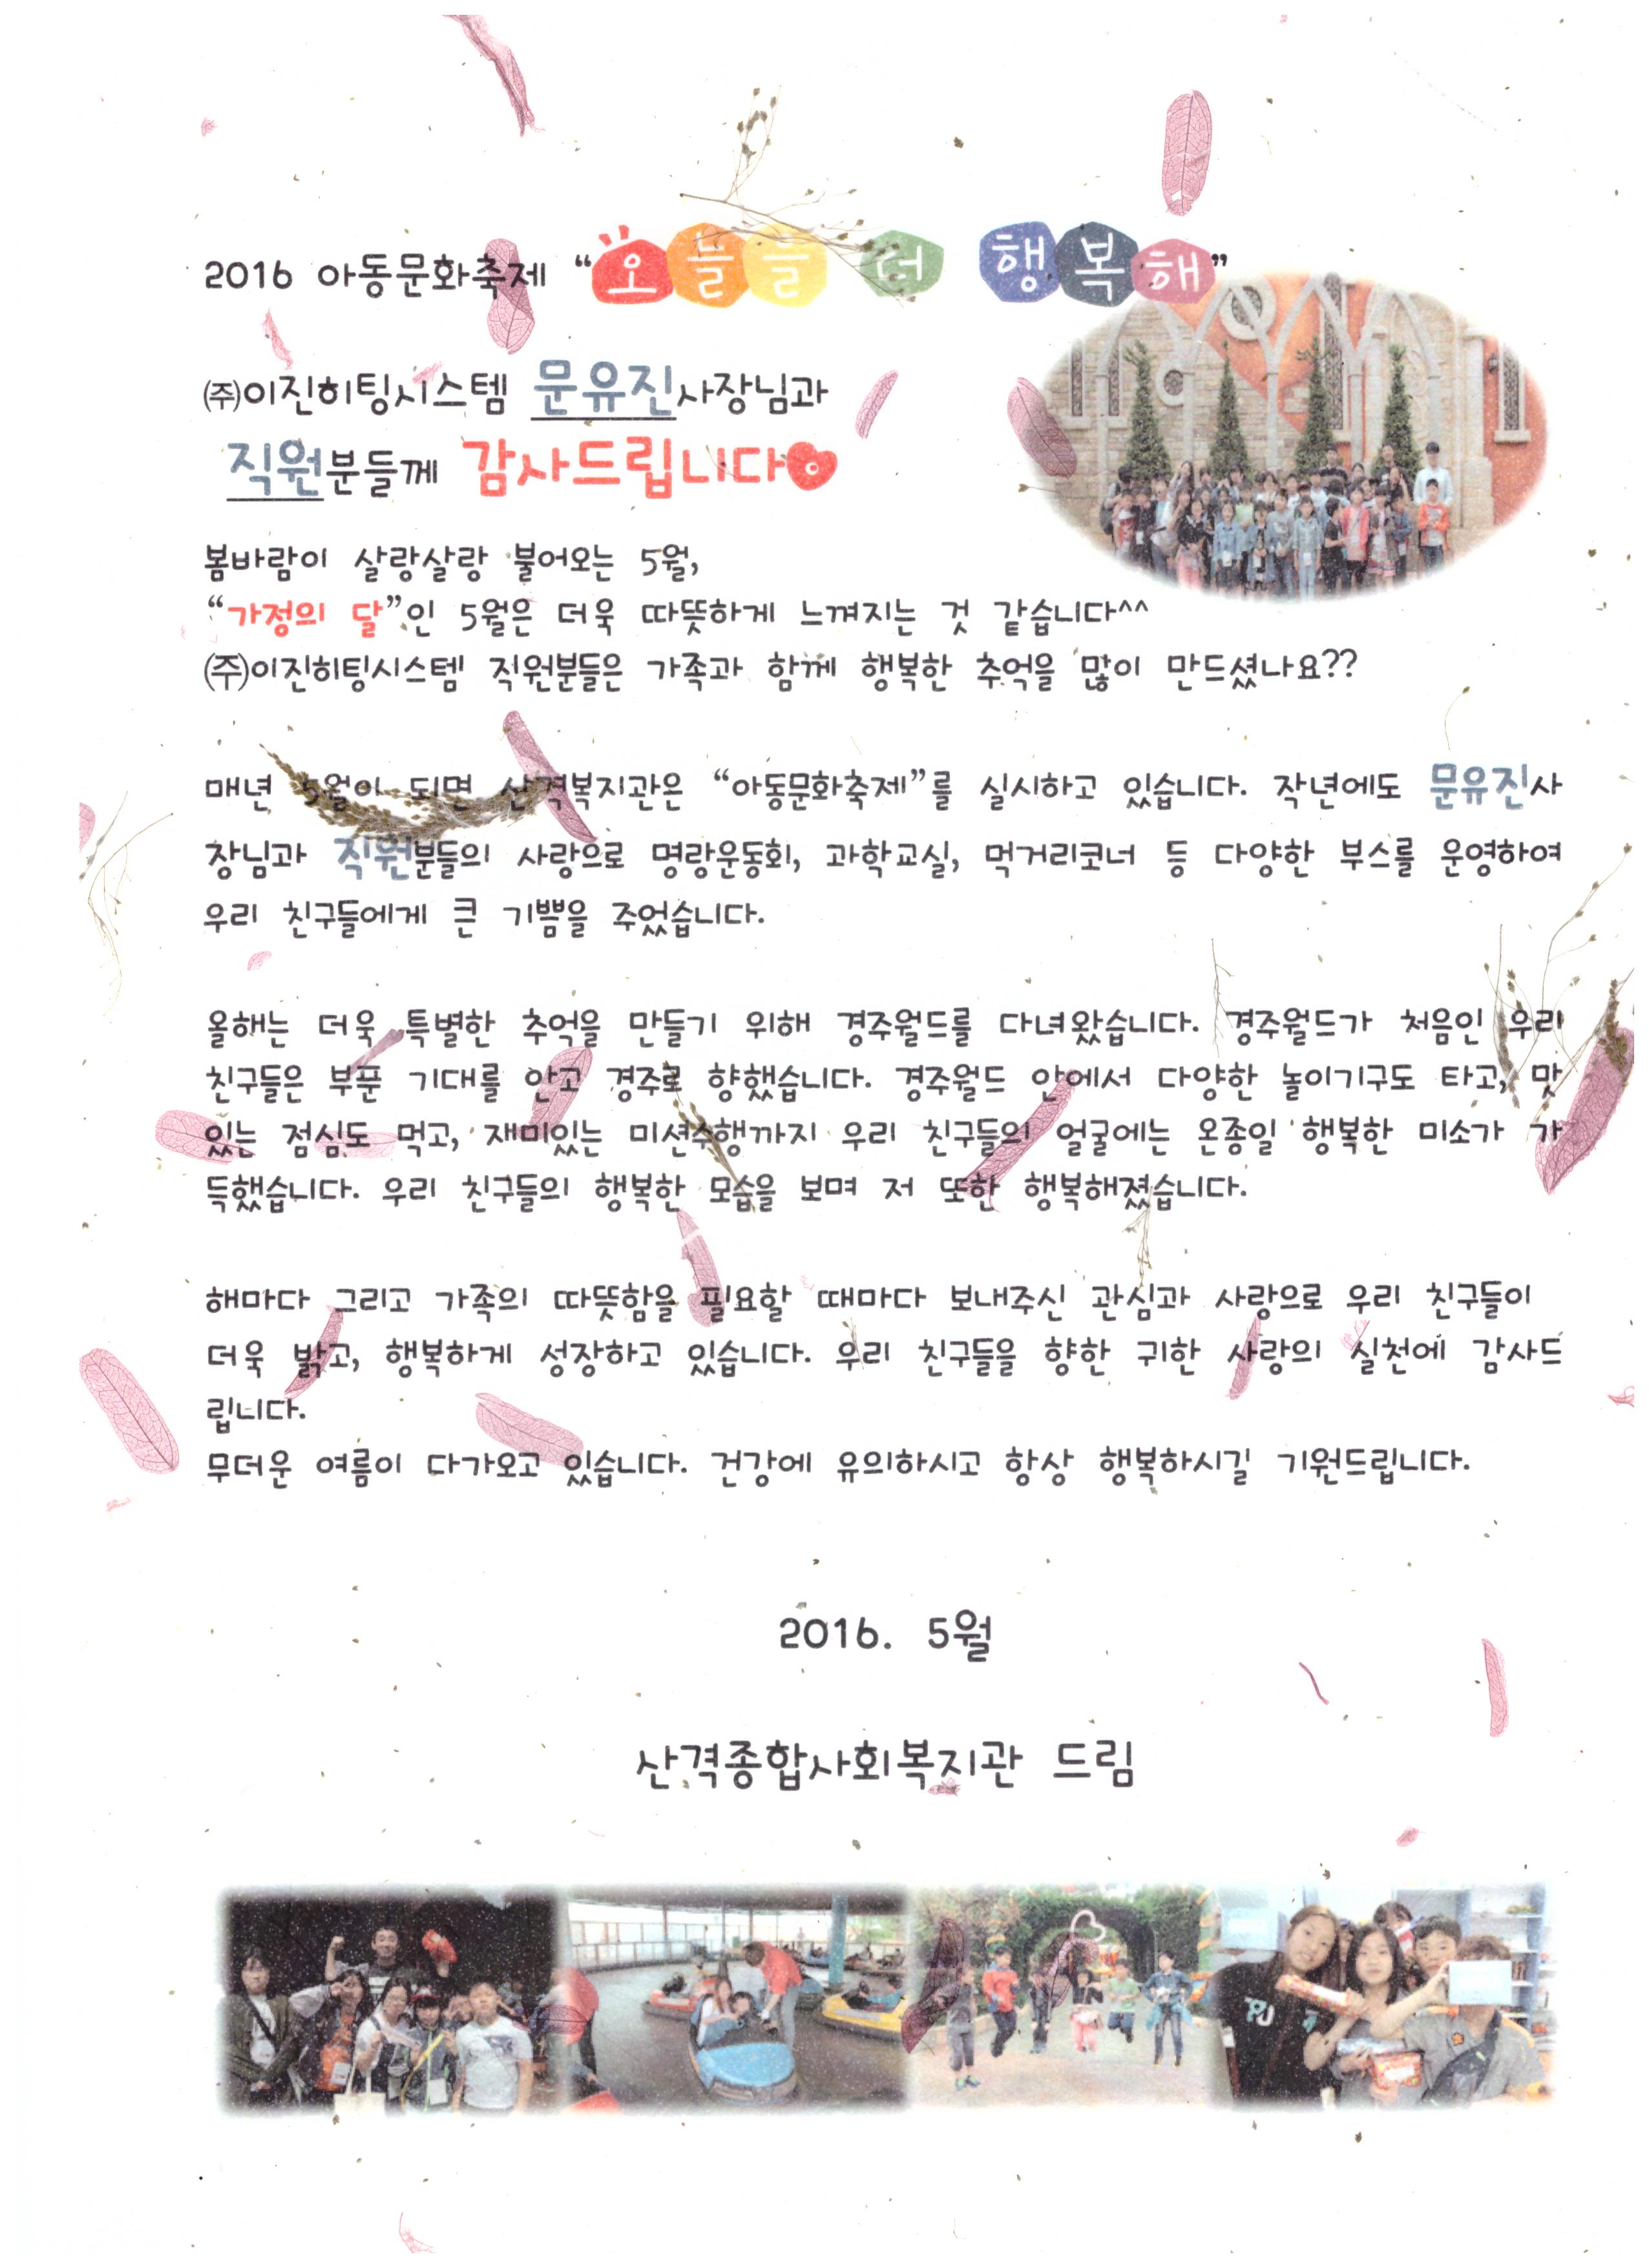 2016 아동문화축제 “오늘늘 더 행복해”
㈜이진히팅시스템 문유진사장님과
직원분들께 감사드립니다
봄바람이 살랑살랑 불어오는 5월,
“가정의 달”인 5월은 더욱 따뜻하게 느껴지는 것 같습니다^^
㈜이진히팅시스템 직원분들은 가족과 함께 행복한 추억을 많이 만드셨나요??
매년 5월이 되면 산격복지관은 “아동문화축제”를 실시하고 있습니다. 작년에도 문유진사
장님과 직원분들의 사랑으로 명랑운동회, 과학교실, 먹거리코너 등 다양한 부스를 운영하여
우리 친구들에게 큰 기쁨을 주었습니다.
올해는 더욱 특별한 추억을 만들기 위해 경주월드를 다녀왔습니다. 경주월드가 처음인 우리
친구들은 부푼 기대를 안고 경주로 향했습니다. 경주월드 안에서 다양한 놀이기구도 타고, 맛
있는 점심도 먹고, 재미있는 미션수행까지 우리 친구들의 얼굴에는 온종일 행복한 미소가 가
득했습니다. 우리 친구들의 행복한 모습을 보며 저 또한 행복해졌습니다.
해마다 그리고 가족의 따뜻함을 필요할 때마다 보내주신 관심과 사랑으로 우리 친구들이
더욱 밝고, 행복하게 성장하고 있습니다. 우리 친구들을 향한 귀한 사랑의 실천에 감사드
립니다.
무더운 여름이 다가오고 있습니다. 건강에 유의하시고 항상 행복하시길 기원드립니다.
2016. 5월
산격종합사회복지관 드림